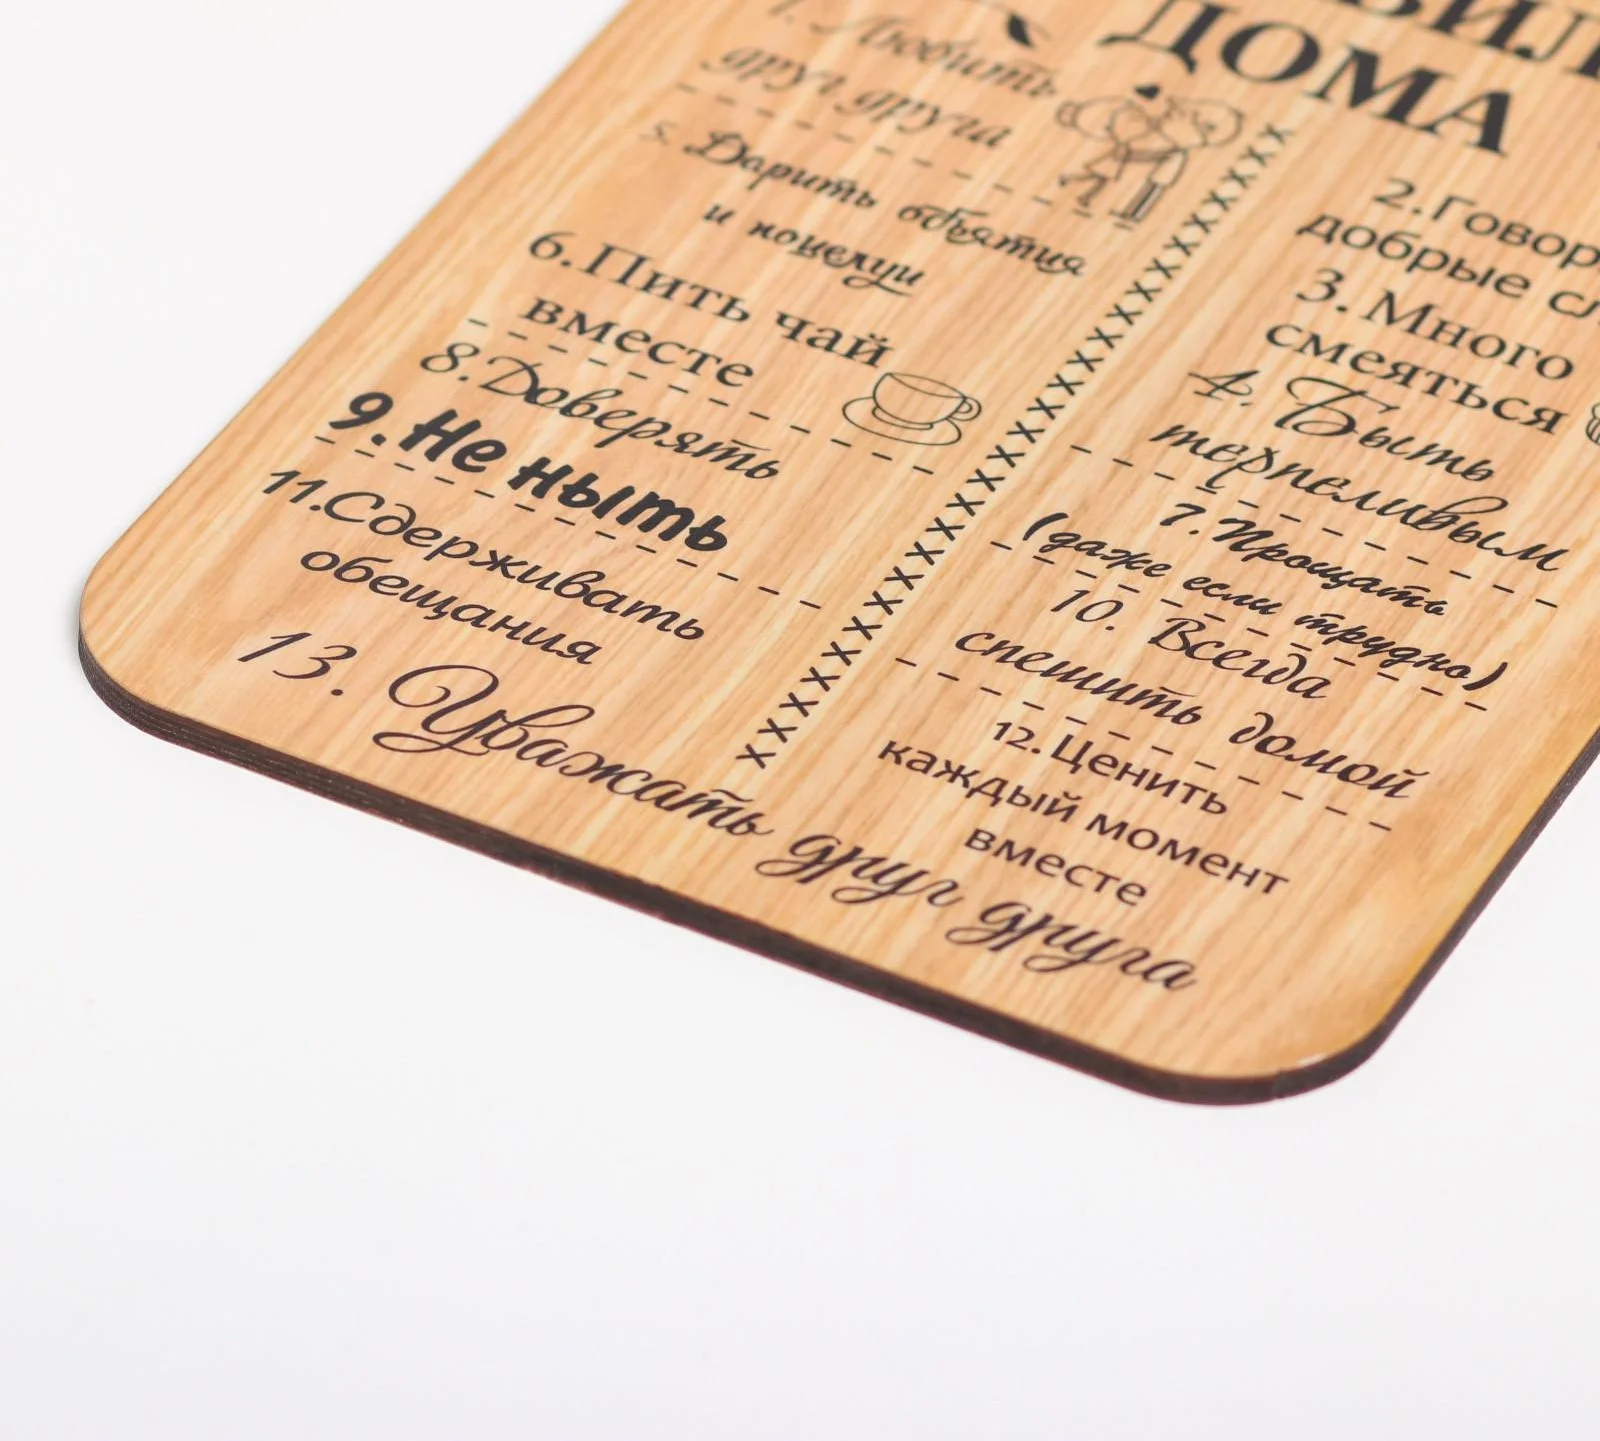 ДОМА
1. Любить
друг друга
5. Дарить объятия
и поцелуи
6. Пить чай
вместе
8. Доверять
9. Не ныть
11. Сдерживать
обещания
2. Говор
добрые сл
3. Много
смеяться
4. Быть
терпеливым
7. Прощать
(даже если трудно)
10. Всегда
спешить домой
12. Ценить
каждый момент
вместе
13. Уважать друг друга